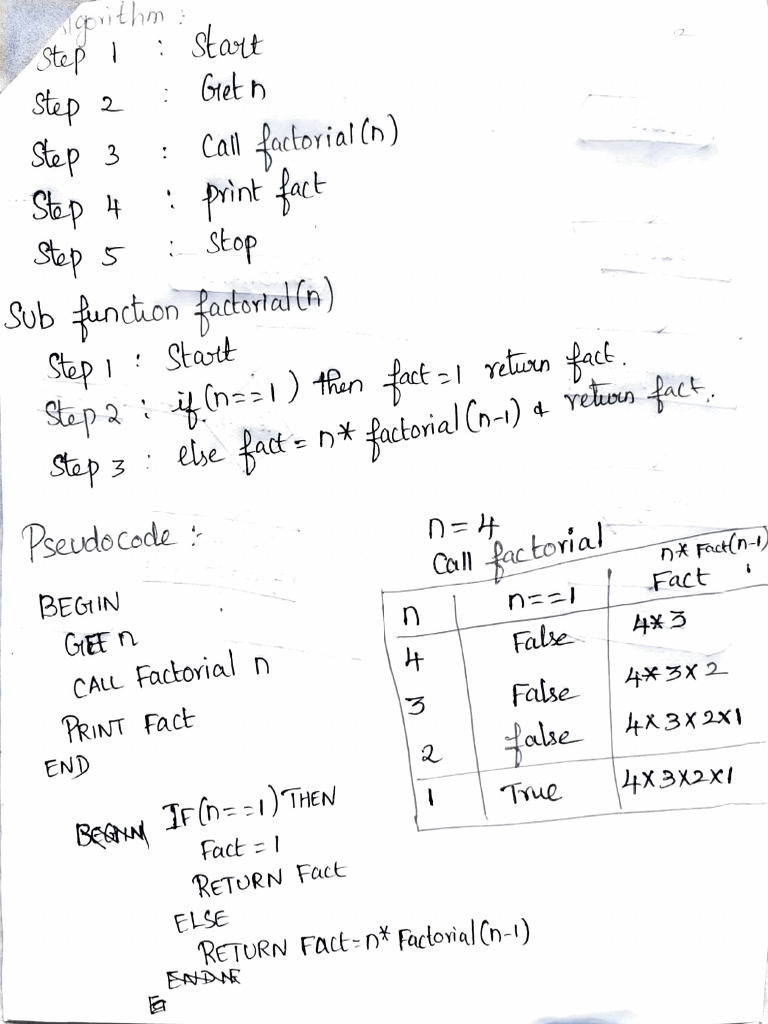 Algorithm :
Step 1 : Start
Step 2 : Get n
Step 3 : Call factorial(n)
Step 4 : print fact
Step 5 : Stop
Sub function factorial(n)
Step 1 : Start
Step 2 : if (n==1) then fact=1 return fact.
Step 3 : else fact = n* factorial(n-1) & return fact.
Pseudocode :-
BEGIN
GET n
CALL Factorial n
PRINT Fact
END
IF(n==1) THEN
Fact = 1
RETURN Fact
ELSE
RETURN Fact=n* Factorial(n-1)
n=4
Call factorial
n n==1 n* Fact(n-1) Fact
4 False 4*3
3 False 4*3×2
2 false 4×3×2×1
1 True 4×3×2×1